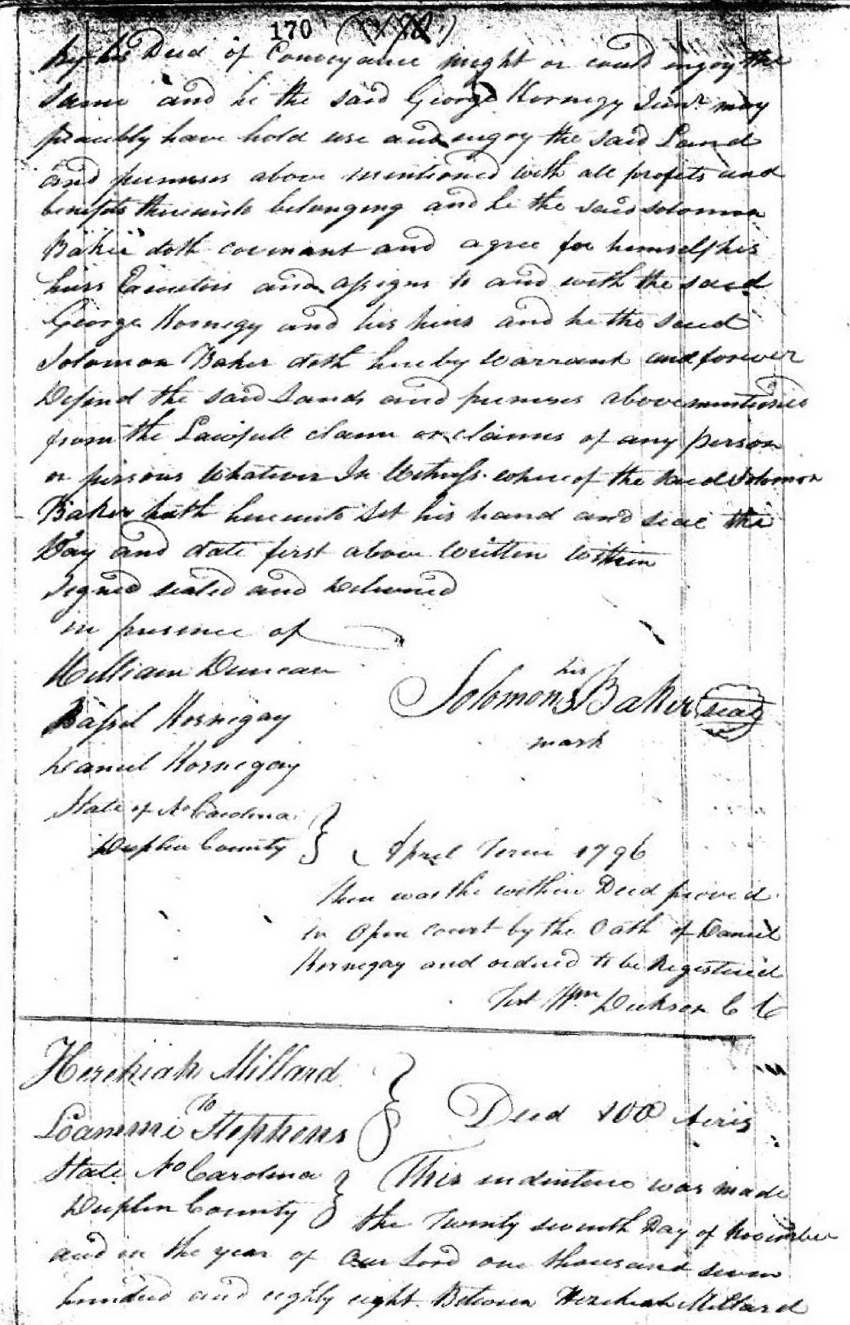 170
by his Deed of Conveyance might or could enjoy the
same and he the said George Kornegy Junr may
peaceibly have hold use and enjoy the said Land
and premises above mentioned with all profits and
benefits thereunto belonging and he the said Solomon
Baker doth covenant and agree for himself his
heirs Executors and assigns to and with the said
George Kornegy and his heirs and he the said
Solomon Baker doth hereby warrant and forever
Defend the said Lands and premises above mentioned
from the Lawfull claim or claims of any person
or persons whatever In Witness whereof the said Solomon
Baker hath hereunto set his hand and seal the
Day and date first above written within
Signed sealed and Delivered
in presence of
William Duncan
Bassel Kornegay
Daniel Kornegay
his
Solomon Baker seal
mark
State of No Carolina
Duplin County } April Term 1796
then was the within Deed proved
in Open court by the Oath of Daniel
Kornegay and ordered to be Registered
Test Wm Dickson C C
Hezekiah Millard
To
Loammi Stephens } Deed 100 Acres
State No Carolina
Duplin County } This indenture was made
the Twenty seventh Day of November
and in the year of Our Lord one thousand seven
hundred and eighty eight Between Hezekiah Millard